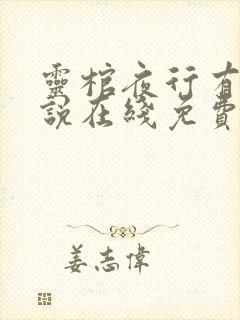 靈棺夜行有
說在綫免費
姜志偉